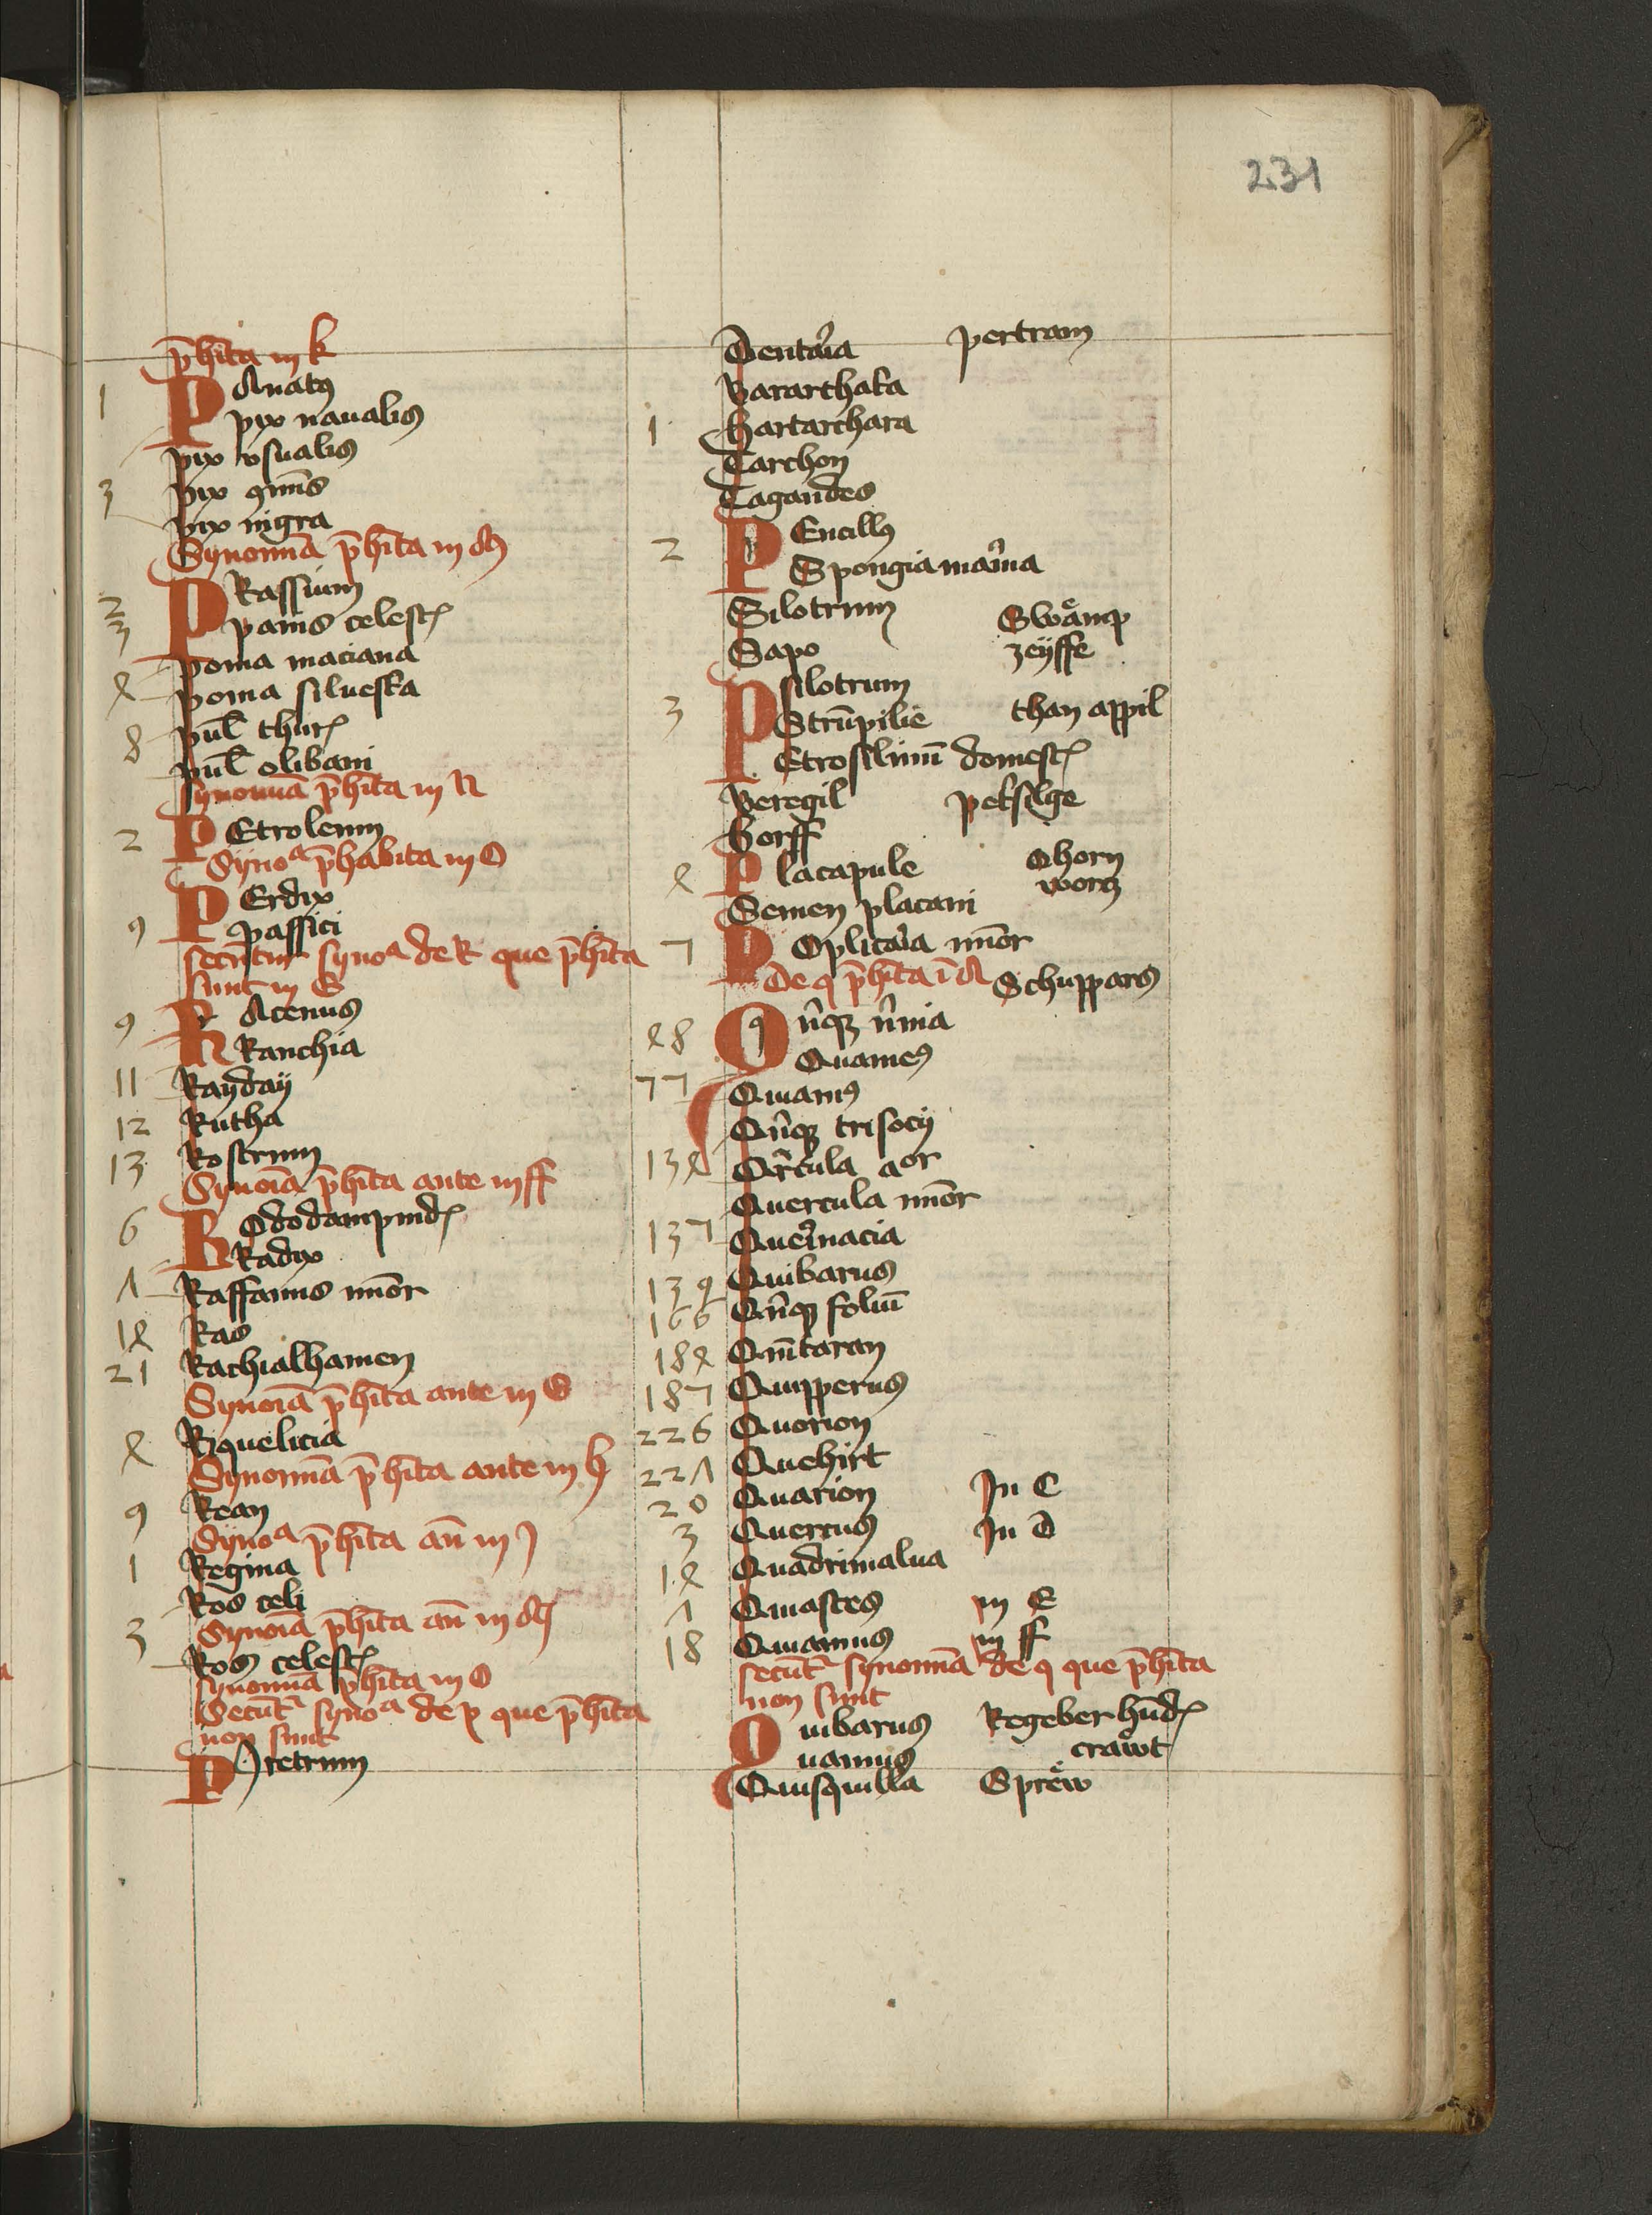 231
p̄hīta in k
1 PAnatꝰ
pix naualis
pix vsualis
3 pix ꝯmūis
pix nigra
Synonīa p̄hīta in M
2 PRassium
3 panis celest
poma maciana
4 poma siluesta
8 pul thur
pul olibani
Synonīa p̄hīta in N
2 PEtroleum
Synoᵃ p̄habita in O
9 PErdix
passici
secūtur synoᵃ de R que p̄hīta
sunt in B
9 RAcemus
Ranchia
11 Rayday
12 Rutha
13 Rostrum
Synoīa p̄hīta ante in ff
6 ROdodampnid
Radix
Λ Raffanus minōr
14 Ras
21 Rachialhamen
Synoīa p̄hīta ante in G
4 Riquelicia
Synonīa p̄hīta ante in h
9 Rean
Synoᵃ p̄hīta an̄ in J
1 Regina
Ros celi
3 Synoīa p̄hīta an̄ in M
Ros celest
Synonīa p̄hīta in O
Secūt synoᵃ de p que p̄hīta
non sunt
PJretrum
Dentaria pertram
Bararthata
1 hartarchara
Tarchon
Tagandes
2 PEncillꝰ
Spongia marina
Silotrum Swämp
Sapo zeyffe
3 Psilotrum
Strūpilie than appil
Etrosilinū domest
Peregil petsilge
Gorff
4 Placapule Ohorn
Semen placani worcz
7 POplicaria minōr
De q p̄hīta ī A Schuppars
48 Qn̄qꝫ n̄mia
Quames
77 Quamꝰ
Qn̄qꝫ trisocij
134 Qr̄cula aor
Quercula minōr
137 Quernacia
139 Quibarus
166 Qn̄qꝫ foliū
184 Qnītaran
187 Quipperus
226 Quorion
22Λ Quehirt
20 Quarion In C
3 Quercus In D
14 Quadrimalua
Λ Quastes in E
18 Quamus in ff
secūt synonīa de q que p̄hīta
non sunt
Quibarus Regeber hūd
uamus crawt
Quisquilla Sprew